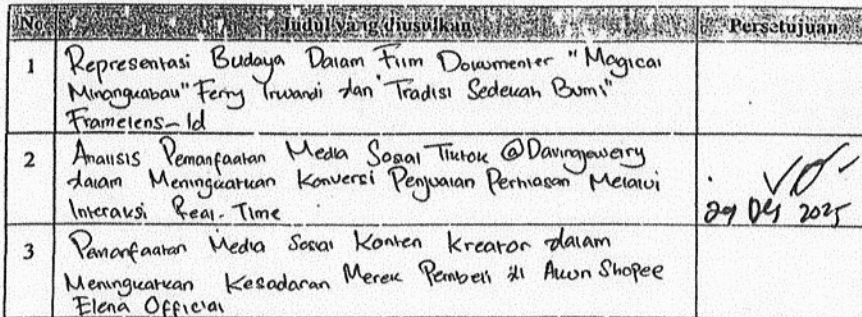 No Judul yang diusulkan Persetujuan
1 Representasi Budaya Dalam Film Dokumenter "Magical
Minangkabau" Ferry Irwandi dan "Tradisi Sedekah Bumi"
Framelens_Id
2 Analisis Pemanfaatan Media Sosial Tiktok @Davingjewelry
dalam Meningkatkan Konversi Penjualan Perhiasan Melalui
Interaksi Real-Time
29 2025
3 Pemanfaatan Media Sosial Konten Kreator dalam
Meningkatkan Kesadaran Merek Pembeli di Akun Shopee
Elena Official